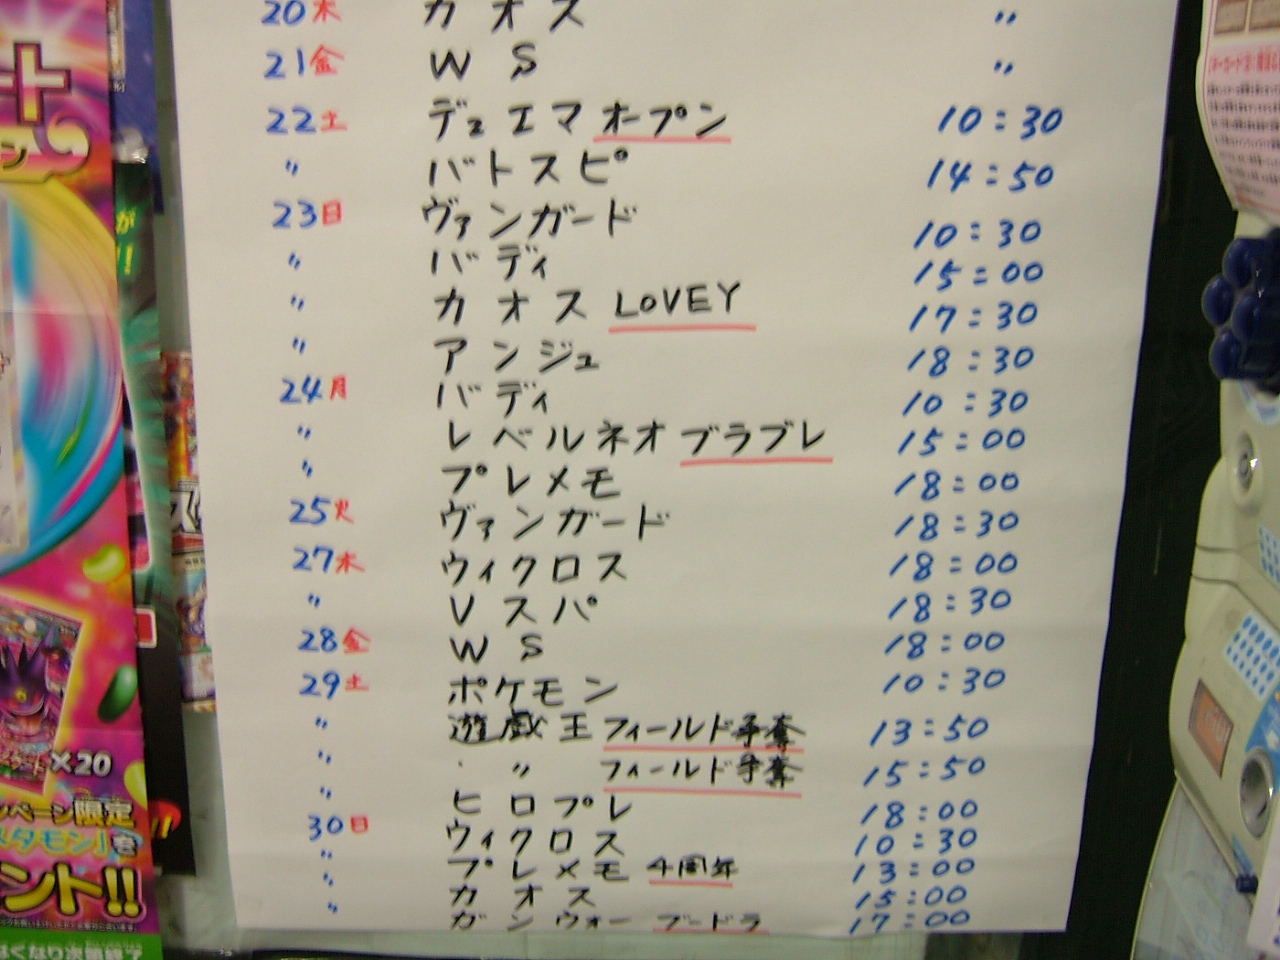 20木 カオス 〃
21金 WS 〃
22土 デュエマ オープン 10:30
〃 バトスピ 14:50
23日 ヴァンガード 10:30
〃 バディ 15:00
〃 カオス LOVEY 17:30
〃 アンジュ 18:30
24月 バディ 10:30
〃 レベルネオ ブラブレ 15:00
〃 プレメモ 18:00
25火 ヴァンガード 18:30
27木 ウィクロス 18:00
〃 Vスパ 18:30
28金 WS 18:00
29土 ポケモン 10:30
〃 遊戯王 フィールド争奪 13:50
〃 〃 フィールド争奪 15:50
〃 ヒロプレ 18:00
30日 ウィクロス 10:30
〃 プレメモ 4周年 13:00
〃 カオス 15:00
〃 ガンウォー ブードラ 17:00
ート
ン
×20
ンペーン限定
スタモン」を
ント!!
なくなり次第終了
が
!!